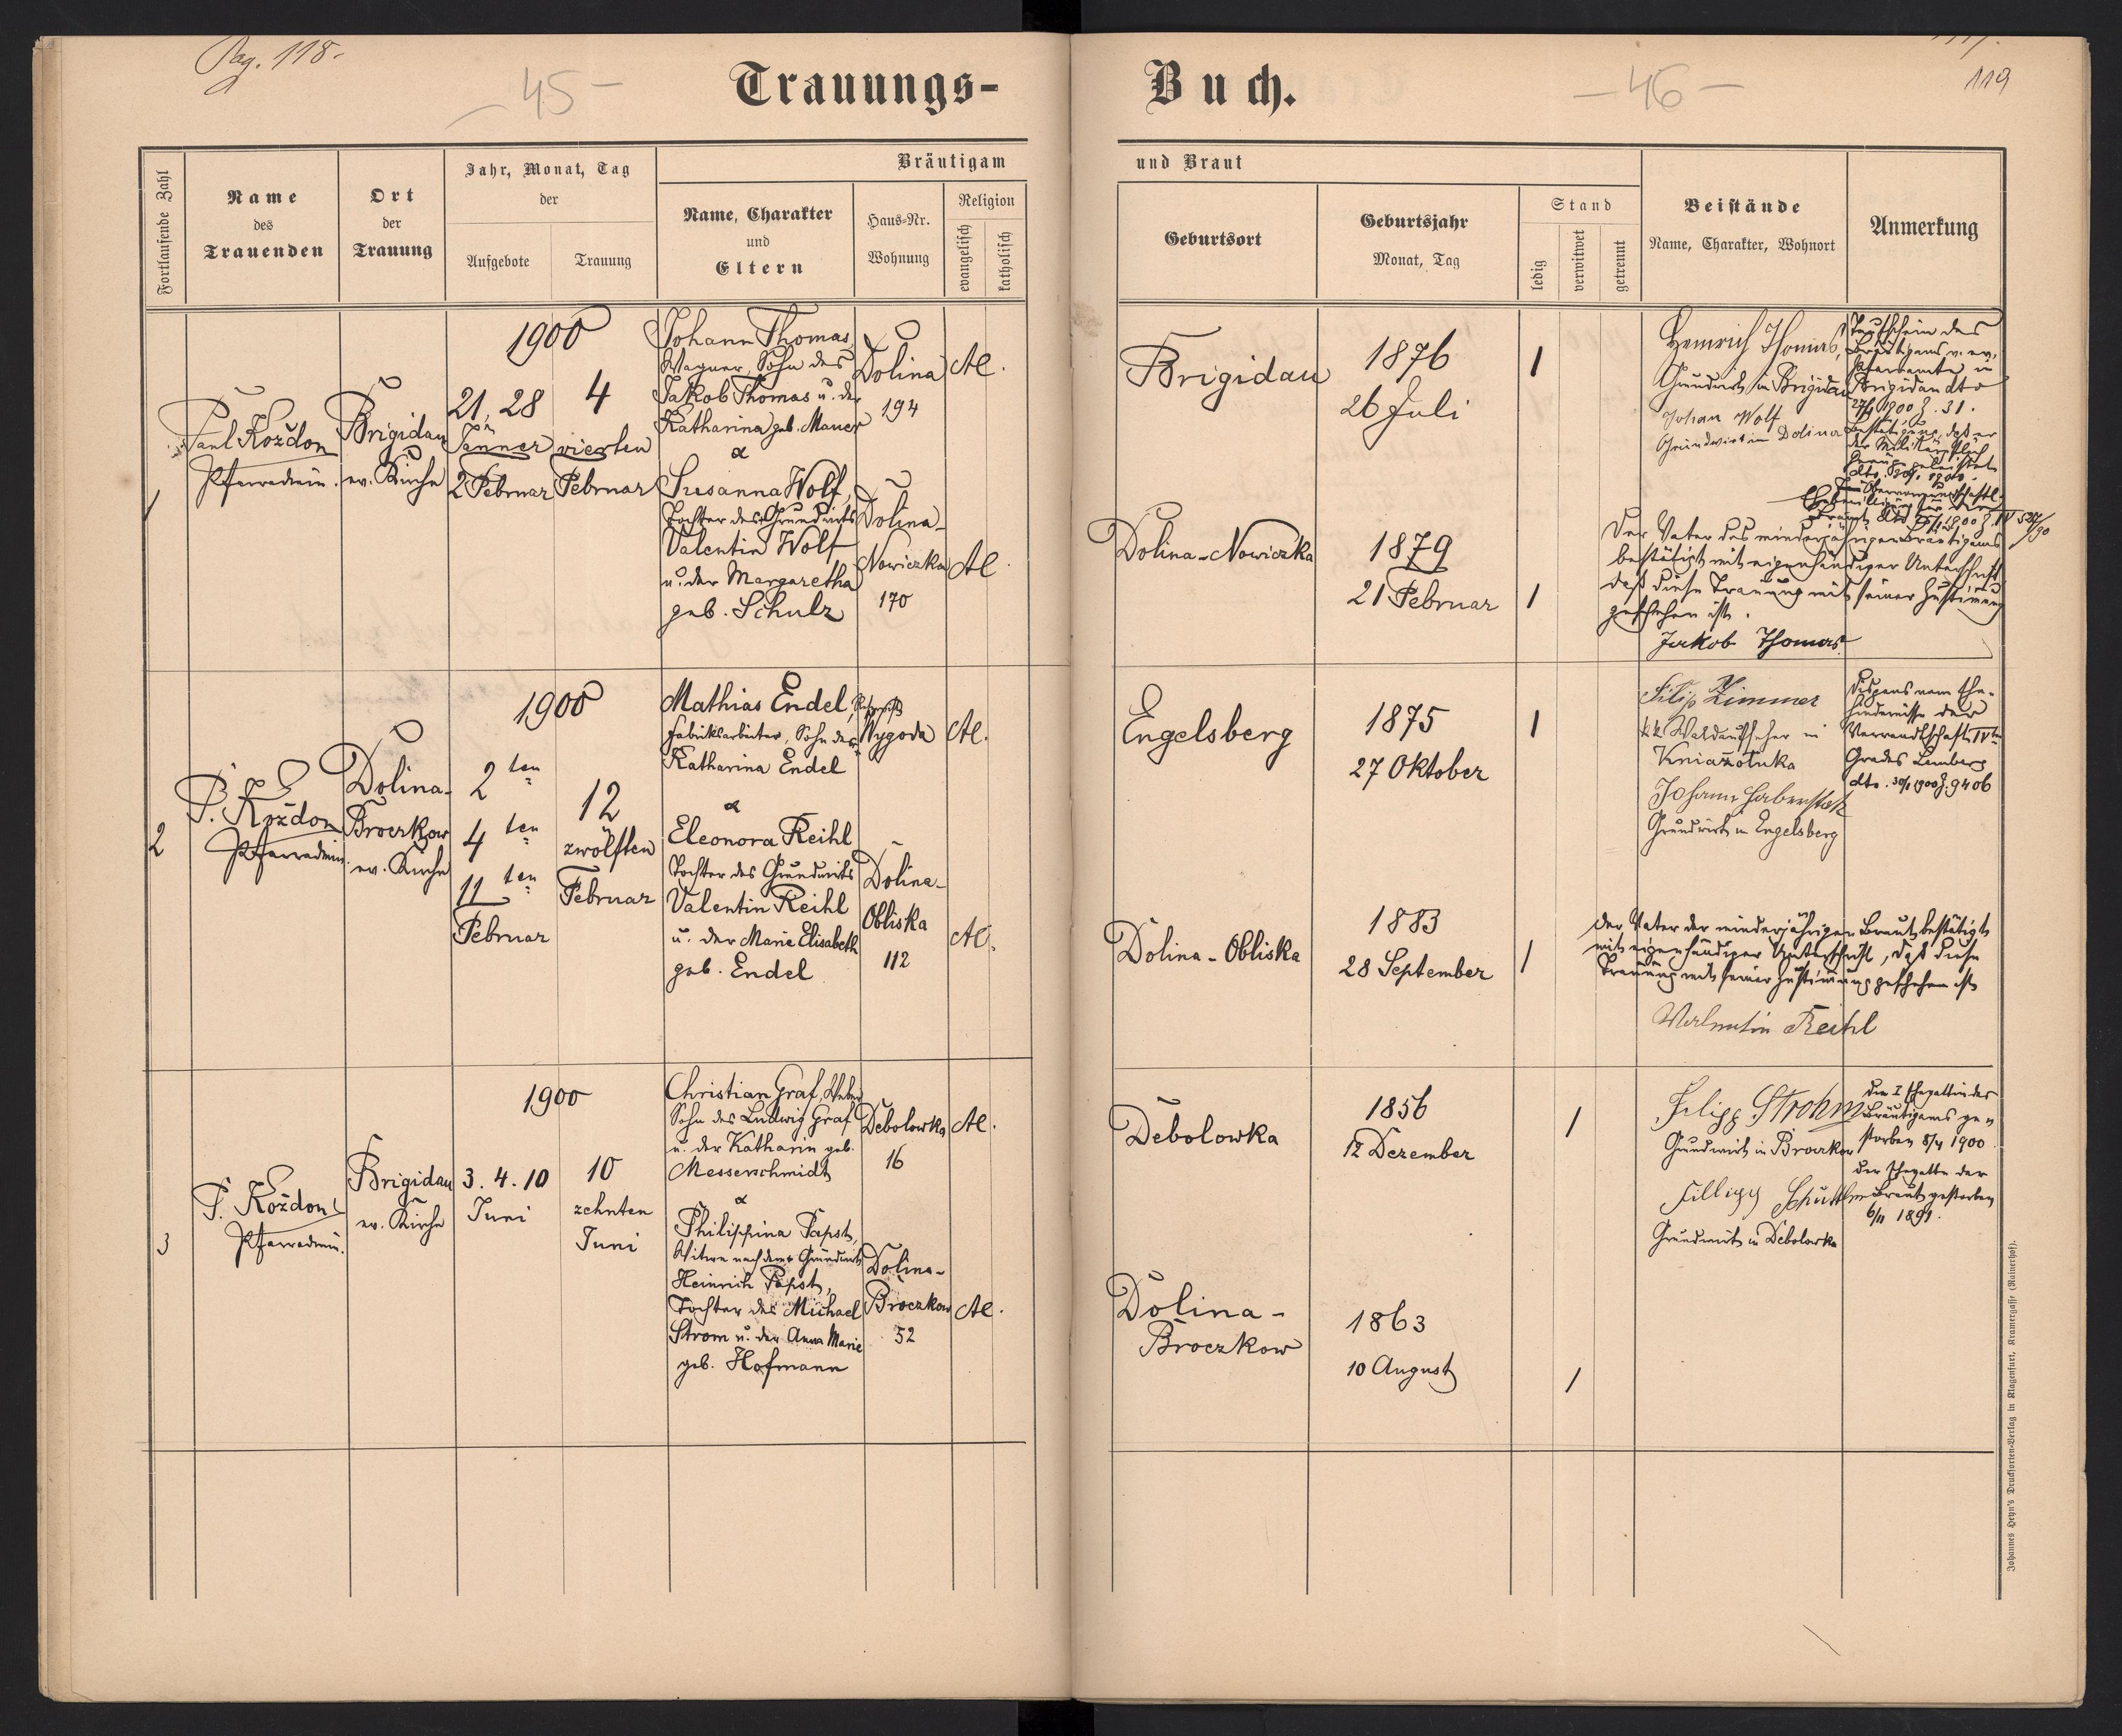 Pag. 118.
- 45 -
Trauungs-
Fortlaufende Zahl
Name
des
Trauenden
Ort
der
Trauung
Jahr, Monat, Tag
der
Aufgebote
Trauung
Bräutigam
Name, Charakter
und
Eltern
Haus-Nr.
Wohnung
Religion
evangelisch
katholisch
1
Paul Kożdon
Pfarradmin.
Brigidau
ev. Kirche
1900
21, 28
Jänner
2 Februar
4
vierten
Februar
Johann Thomas,
Wagner, Sohn des
Jakob Thomas u. der
Katharina geb. Mauer
&
Susanna Wolf,
Tochter des Grundwirts
Valentin Wolf
u. der Margaretha
geb. Schulz
Dolina
194
Dolina-
Nowiczka
170
AC.
AC.
2
P. Kożdon
Pfarradmin.
Dolina-
Broczkow
ev. Kirche
1900
2ten
4ten
11ten
Februar
12
zwölften
Februar
Mathias Endel,
Fabriksarbeiter, Sohn der
Katharina Endel
&
Eleonora Reihl
Tochter des Grundwirts
Valentin Reihl
u. der Marie Elisabeth
geb. Endel
Wygoda
Dolina-
Obliska
112
AC.
AC.
3
P. Kożdon
Pfarradmin.
Brigidau
ev. Kirche
1900
3. 4. 10
Juni
10
zehnten
Juni
Christian Graf, Weber
Sohn des Ludwig Graf
u. der Katharin geb.
Messerschmidt
&
Philippina Papst,
Witwe nach dem Grundwirt
Heinrich Papst,
Tochter des Michael
Strom u. der Anna Marie
geb. Hofmann
Debolowka
16
Dolina-
Broczkow
52
AC.
AC.
Buch.
- 46 -
119
und Braut
Geburtsort
Geburtsjahr
Monat, Tag
Stand
ledig
verwitwet
getrennt
Beistände
Name, Charakter, Wohnort
Anmerkung
Brigidau
1876
26 Juli
1
Heinrich Thomas,
Grundwirt in Brigidau
Johan Wolf
Grundwirt in Dolina
Taufschein des
Bräutigams v. ev.
Pfarramte in
Brigidau dto
27/1 1900 Z. 31.
Bestätigung, daß er
der Militärpflicht
Genüge geleistet
Dolina-Nowiczka
1879
21 Februar
1
Der Vater des minderjährigen Bräutigams
bestätigt mit eigenhändiger Unterschrift
daß diese Trauung mit seiner Zustimmung
geschehen ist.
Jakob Thomas
Engelsberg
1875
27 Oktober
1
Filip Zimmer
kk Waldaufseher in
Kniażoluka
Johann Haberstok
Grundwirt in Engelsberg
Dispens vom Ehe-
hindernisse der
Verwandtschaft IVten
Grades Lemberg
dto. 30/1 1900 Z. 9406
Dolina-Obliska
1883
28 September
1
Der Vater der minderjährigen Braut bestätigt
mit eigenhändiger Unterschrift, daß diese
Trauung mit seiner Zustimmung geschehen ist
Valentin Reihl
Debolowka
1856
12 Dezember
1
Filipp Strohm
Grundwirt in Broczkow
Fillipp
Grundwirt in Debolowka
Die I Ehegattin des
Bräutigams ge=
storben 8/4 1900
Der Ehegatte der
Braut gestorben
6/11 1891.
Dolina-
Broczkow
1863
10 August
1
Johannes Heyn's Drucksorten-Verlag in Klagenfurt, Kramergasse (Rainerhof).